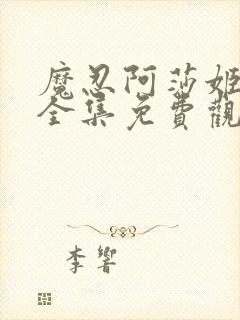 魔忍阿莎姬
全集免費觀
李響